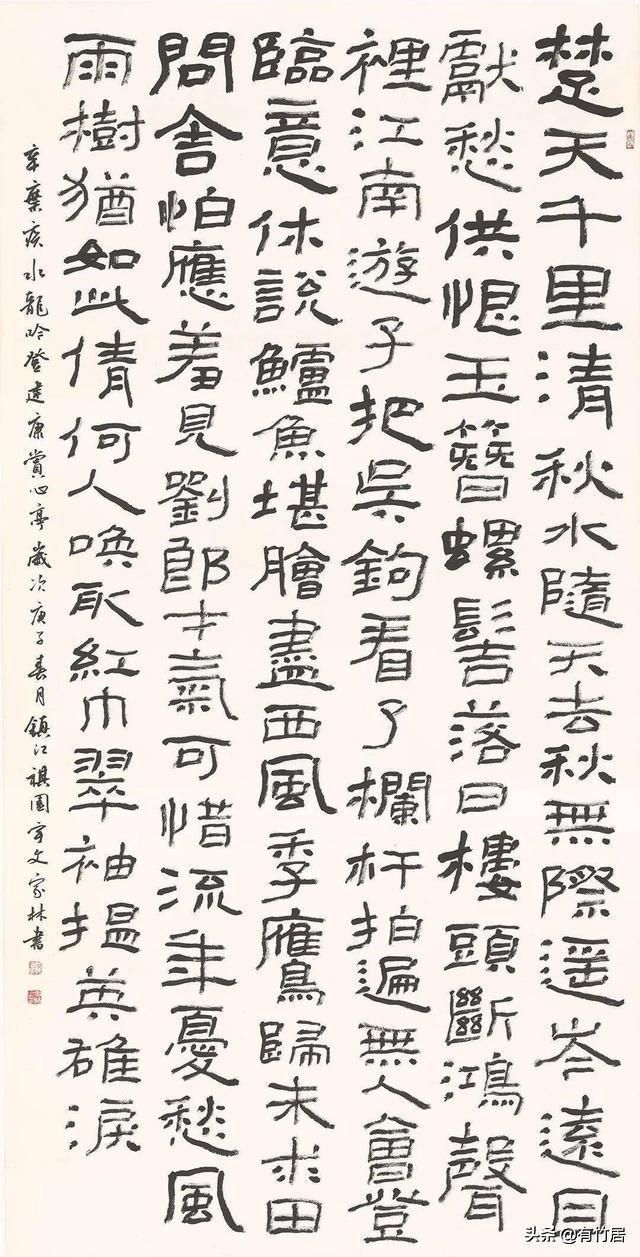 楚天千里清秋水隨天去秋無際遥岑遠目
獻愁供恨玉簪螺髻落日樓頭斷鴻聲
裡江南遊子把吳鉤看了欄杆拍遍無人會登
臨意休說鱸魚堪膾盡西風季鷹歸未求田
問舍怕應羞見劉郎才氣可惜流年憂愁風
雨樹猶如此倩何人喚取紅巾翠袖揾英雄淚
辛棄疾水龍吟登建康賞心亭歲次庚子春月鎮江祺園宇文家林書
头条 @有竹居